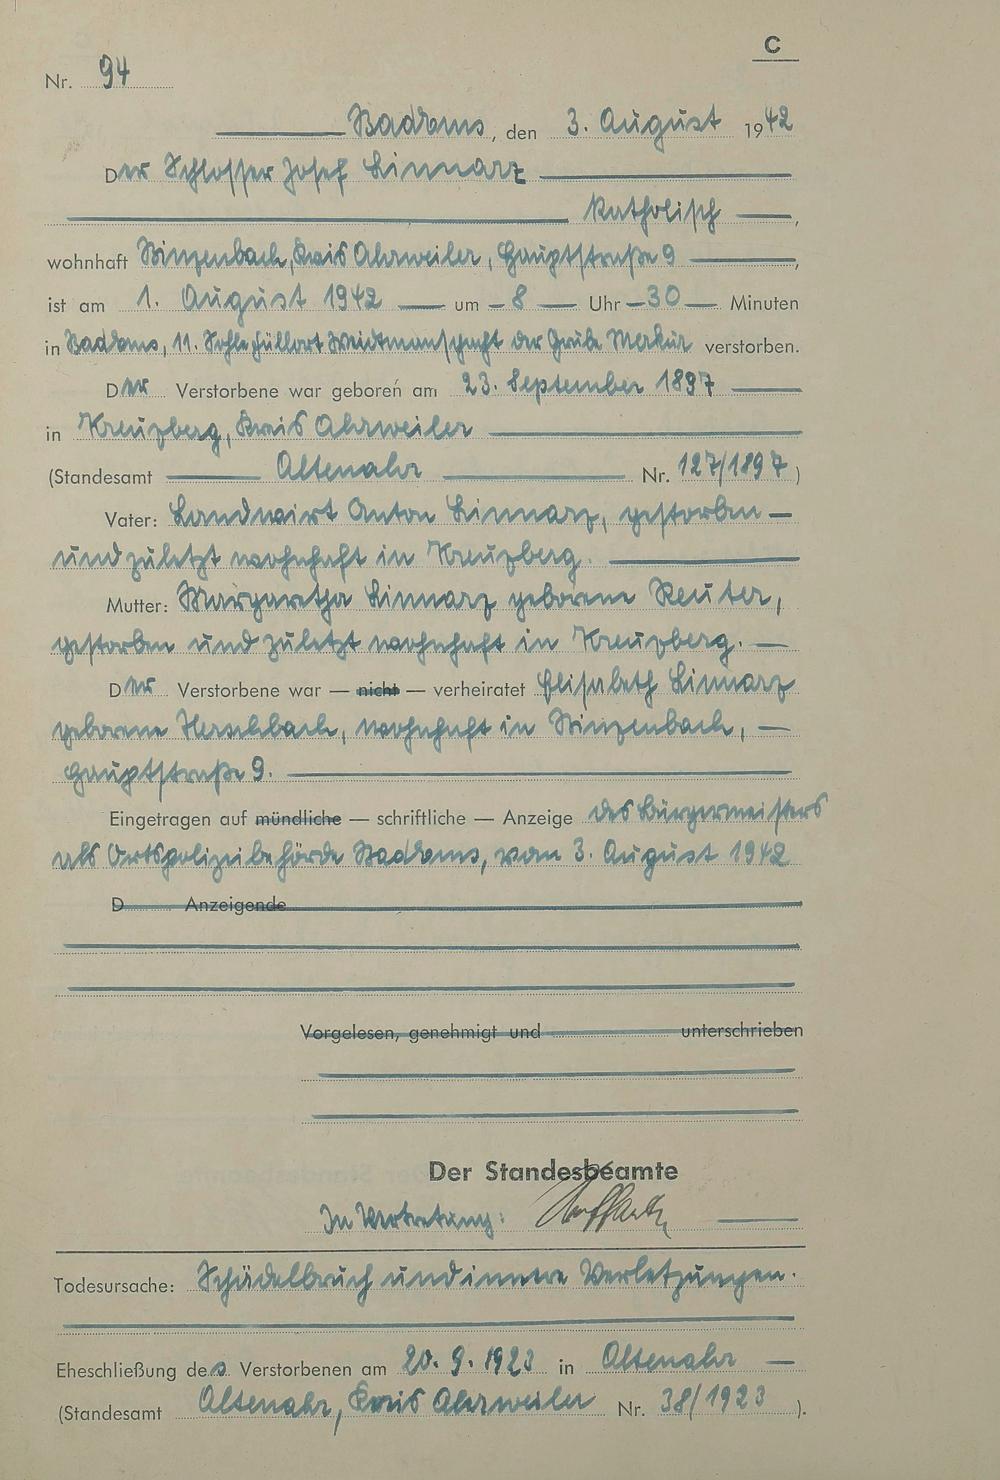 C
Nr. 94
Baddems, den 3. August 1942
Der Schlosser Josef Linnarz
katholisch,
wohnhaft Binzenbach, Kreis Ahrweiler, Hauptstraße 9,
ist am 1. August 1942 um 8 Uhr 30 Minuten
in Baddems, 11. Sohle Füllort Weidtmanschacht der Grube Merkur verstorben.
Der Verstorbene war geboren am 23. September 1897
in Kreuzberg, Kreis Ahrweiler
(Standesamt Altenahr Nr. 127/1897)
Vater: Landwirt Anton Linnarz, gestorben
und zuletzt wohnhaft in Kreuzberg.
Mutter: Margaretha Linnarz geborene Reuter,
gestorben und zuletzt wohnhaft in Kreuzberg.
Der Verstorbene war — nicht — verheiratet Elisabeth Linnarz
geborene, wohnhaft in Binzenbach,
Hauptstraße 9.
Eingetragen auf mündliche — schriftliche — Anzeige des Bürgermeisters
als Ortspolizeibehörde Baddems, vom 3. August 1942
D Anzeigende
Vorgelesen, genehmigt und unterschrieben
Der Standesbeamte
In Vertretung:
Todesursache: Schädelbruch und innere Verletzungen.
Eheschließung des Verstorbenen am 20. 9. 1923 in Altenahr
(Standesamt Altenahr, Kreis Ahrweiler Nr. 38/1923).